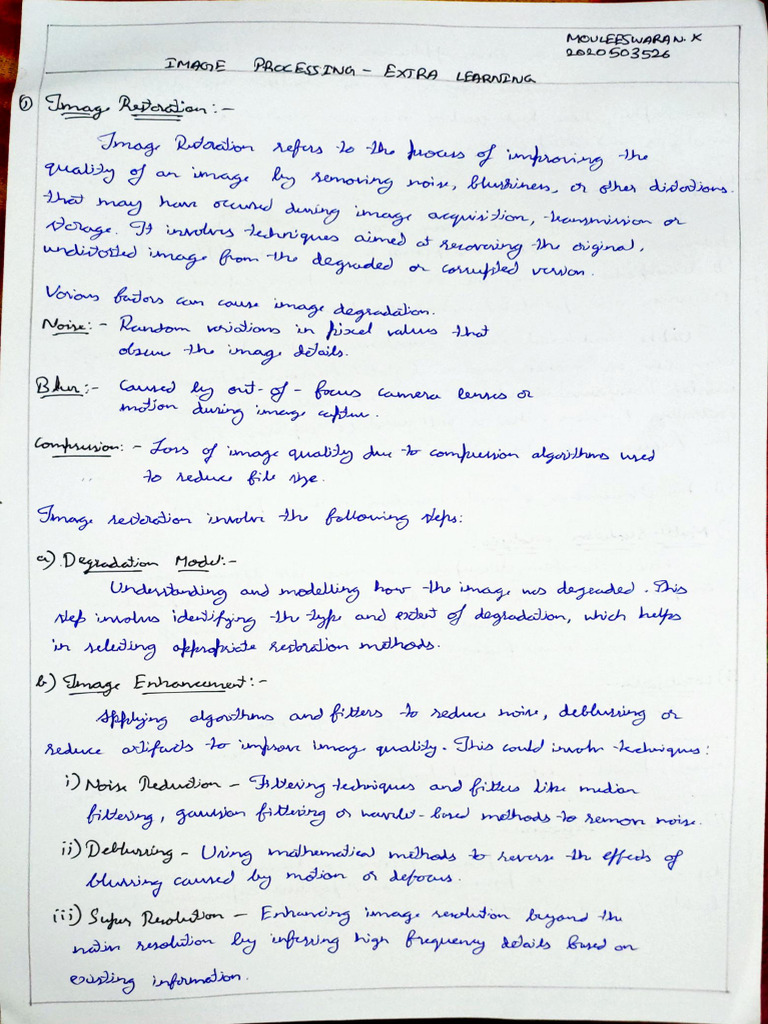 MOULEESWARAN.K
2020503526
IMAGE PROCESSING - EXTRA LEARNING
① Image Restoration:-
Image Restoration refers to the process of improving the
quality of an image by removing noise, blurriness, or other distortions
that may have occured during image acquisition, transmission or
storage. It involves techniques aimed at recovering the original,
undistorted image from the degraded or corrupted version.
Various factors can cause image degradation.
Noise:- Random variations in pixel values that
obscure the image details.
Blur:- Caused by out-of-focus camera lenses or
motion during image capture.
Compression:- Loss of image quality due to compression algorithms used
to reduce file size.
Image restoration involve the following steps:
a) Degradation Model:-
Understanding and modelling how the image was degraded. This
step involves identifying the type and extent of degradation, which helps
in selecting appropriate restoration methods.
b) Image Enhancement:-
Applying algorithms and filters to reduce noise, deblurring or
reduce artifacts to improve image quality. This could involve techniques:
i) Noise Reduction - Filtering techniques and filters like median
filtering, gaussian filtering or wavelet-based methods to remove noise.
ii) Deblurring - Using mathematical methods to reverse the effects of
blurring caused by motion or defocus.
iii) Super Resolution - Enhancing image resolution beyond the
native resolution by inferring high frequency details based on
existing information.